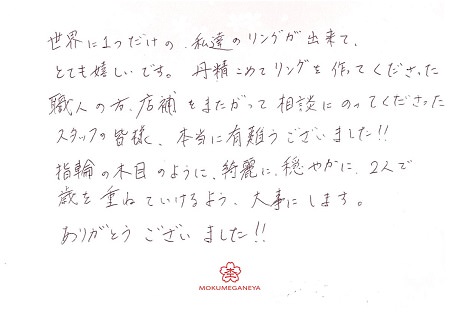 世界に1つだけの、私達のリングが出来て、
とても嬉しいです。丹精こめてリングを作ってくださった
職人の方、店補をまたがって相談にのってくださった
スタッフの皆様、本当に有難うございました!!
指輪の木目のように、綺麗に、穏やかに、2人で
歳を重ねていけるよう、大事にします。
ありがとうございました!!
MOKUMEGANEYA